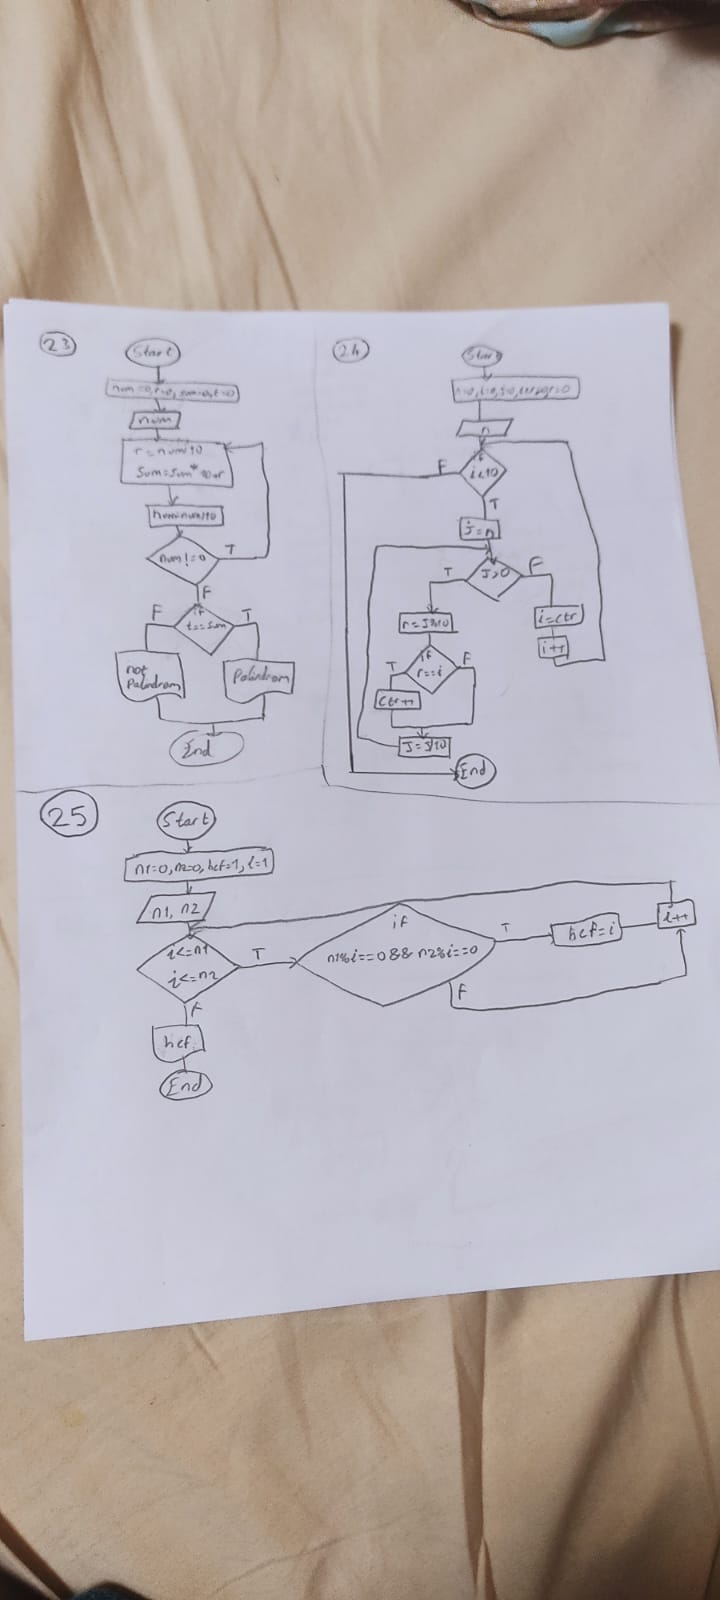 23
Start
num=0,r=0, sum=0,t=0
num
r=num%10
Sum=Sum*10+r
num=num/10
num!=0
T
F
if
t==Sum
F
T
not
Palindrom
Palindrom
End
24
Start
n
if
i<10
F
T
J=n
J>0
T
F
r=J%10
i=ctr
i++
if
r==i
T
F
ctr++
J=J/10
End
25
Start
n1=0,n2=0,hcf=1,i=1
n1, n2
i<=n1
i<=n2
T
F
if
n1%i==0&& n2%i==0
T
F
hcf=i
i++
hcf
End